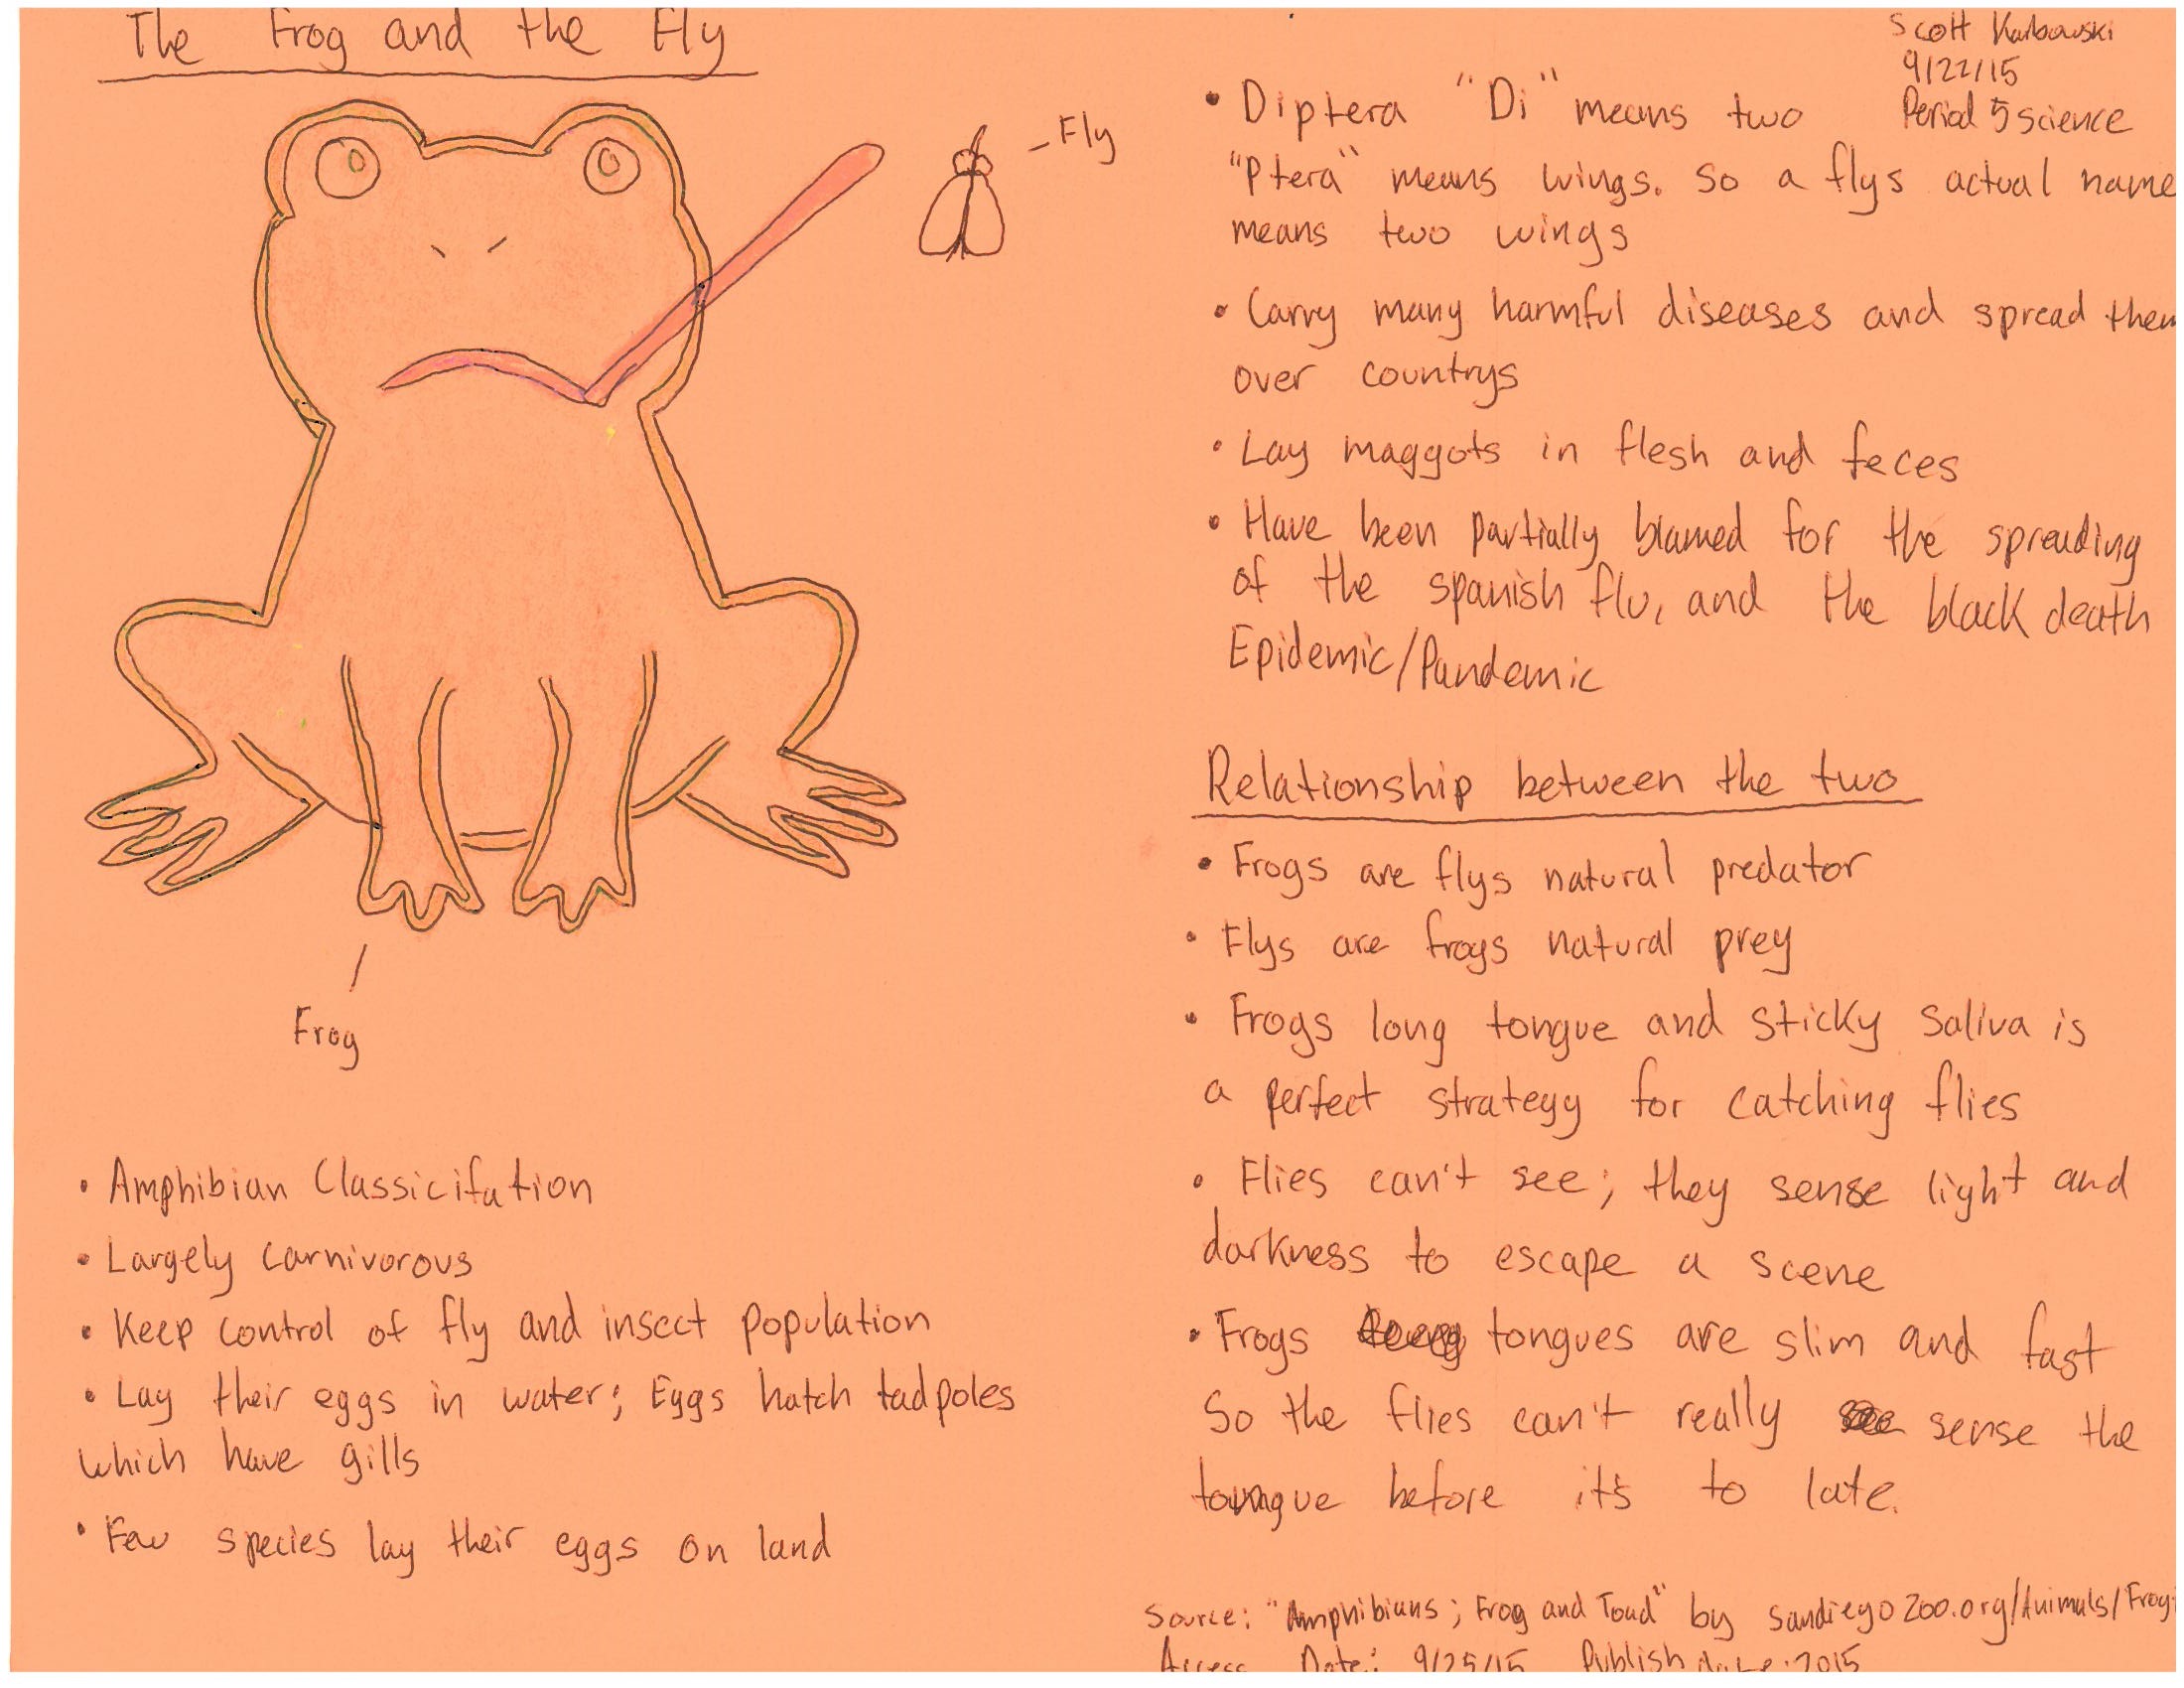 The Frog and the Fly
Scott Karbowski
9/22/15
Period 5 science
Fly
Frog
• Amphibian Classicifation
• Largely carnivorous
• Keep control of fly and insect population
• Lay their eggs in water; Eggs hatch tadpoles
which have gills
• Few species lay their eggs on land
• Diptera "Di" means two
"Ptera" means wings. So a flys actual name
means two wings
• Carry many harmful diseases and spread them
over countrys
• Lay maggots in flesh and feces
• Have been partially blamed for the spreading
of the spanish flu, and the black death
Epidemic/Pandemic
Relationship between the two
• Frogs are flys natural predator
• Flys are frogs natural prey
• Frogs long tongue and sticky saliva is
a perfect strategy for catching flies
• Flies can't see; they sense light and
darkness to escape a scene
• Frogs tongues are slim and fast
So the flies can't really sense the
toungue before it's to late.
Source: "Amphibians; Frog and Toad" by sandiegozoo.org/Animals/Frog
Access Date: 9/25/15 Publish date: 2015